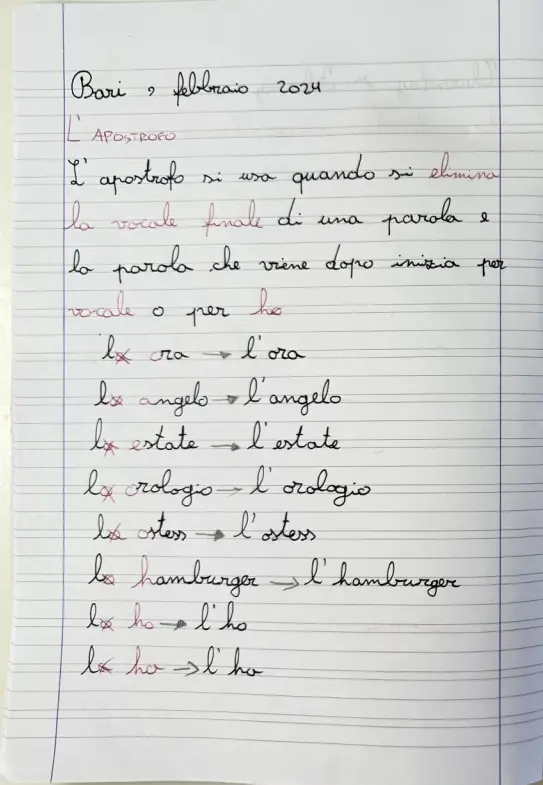 Bari, febbraio 2024
L'APOSTROFO
L'apostrofo si usa quando si elimina
la vocale finale di una parola e
la parola che viene dopo inizia per
vocale o per ho
la ora → l'ora
lo angelo → l'angelo
la estate → l'estate
lo orologio → l'orologio
lo ostess → l'ostess
lo hamburger → l'hamburger
lo ho → l'ho
la ho → l'ho